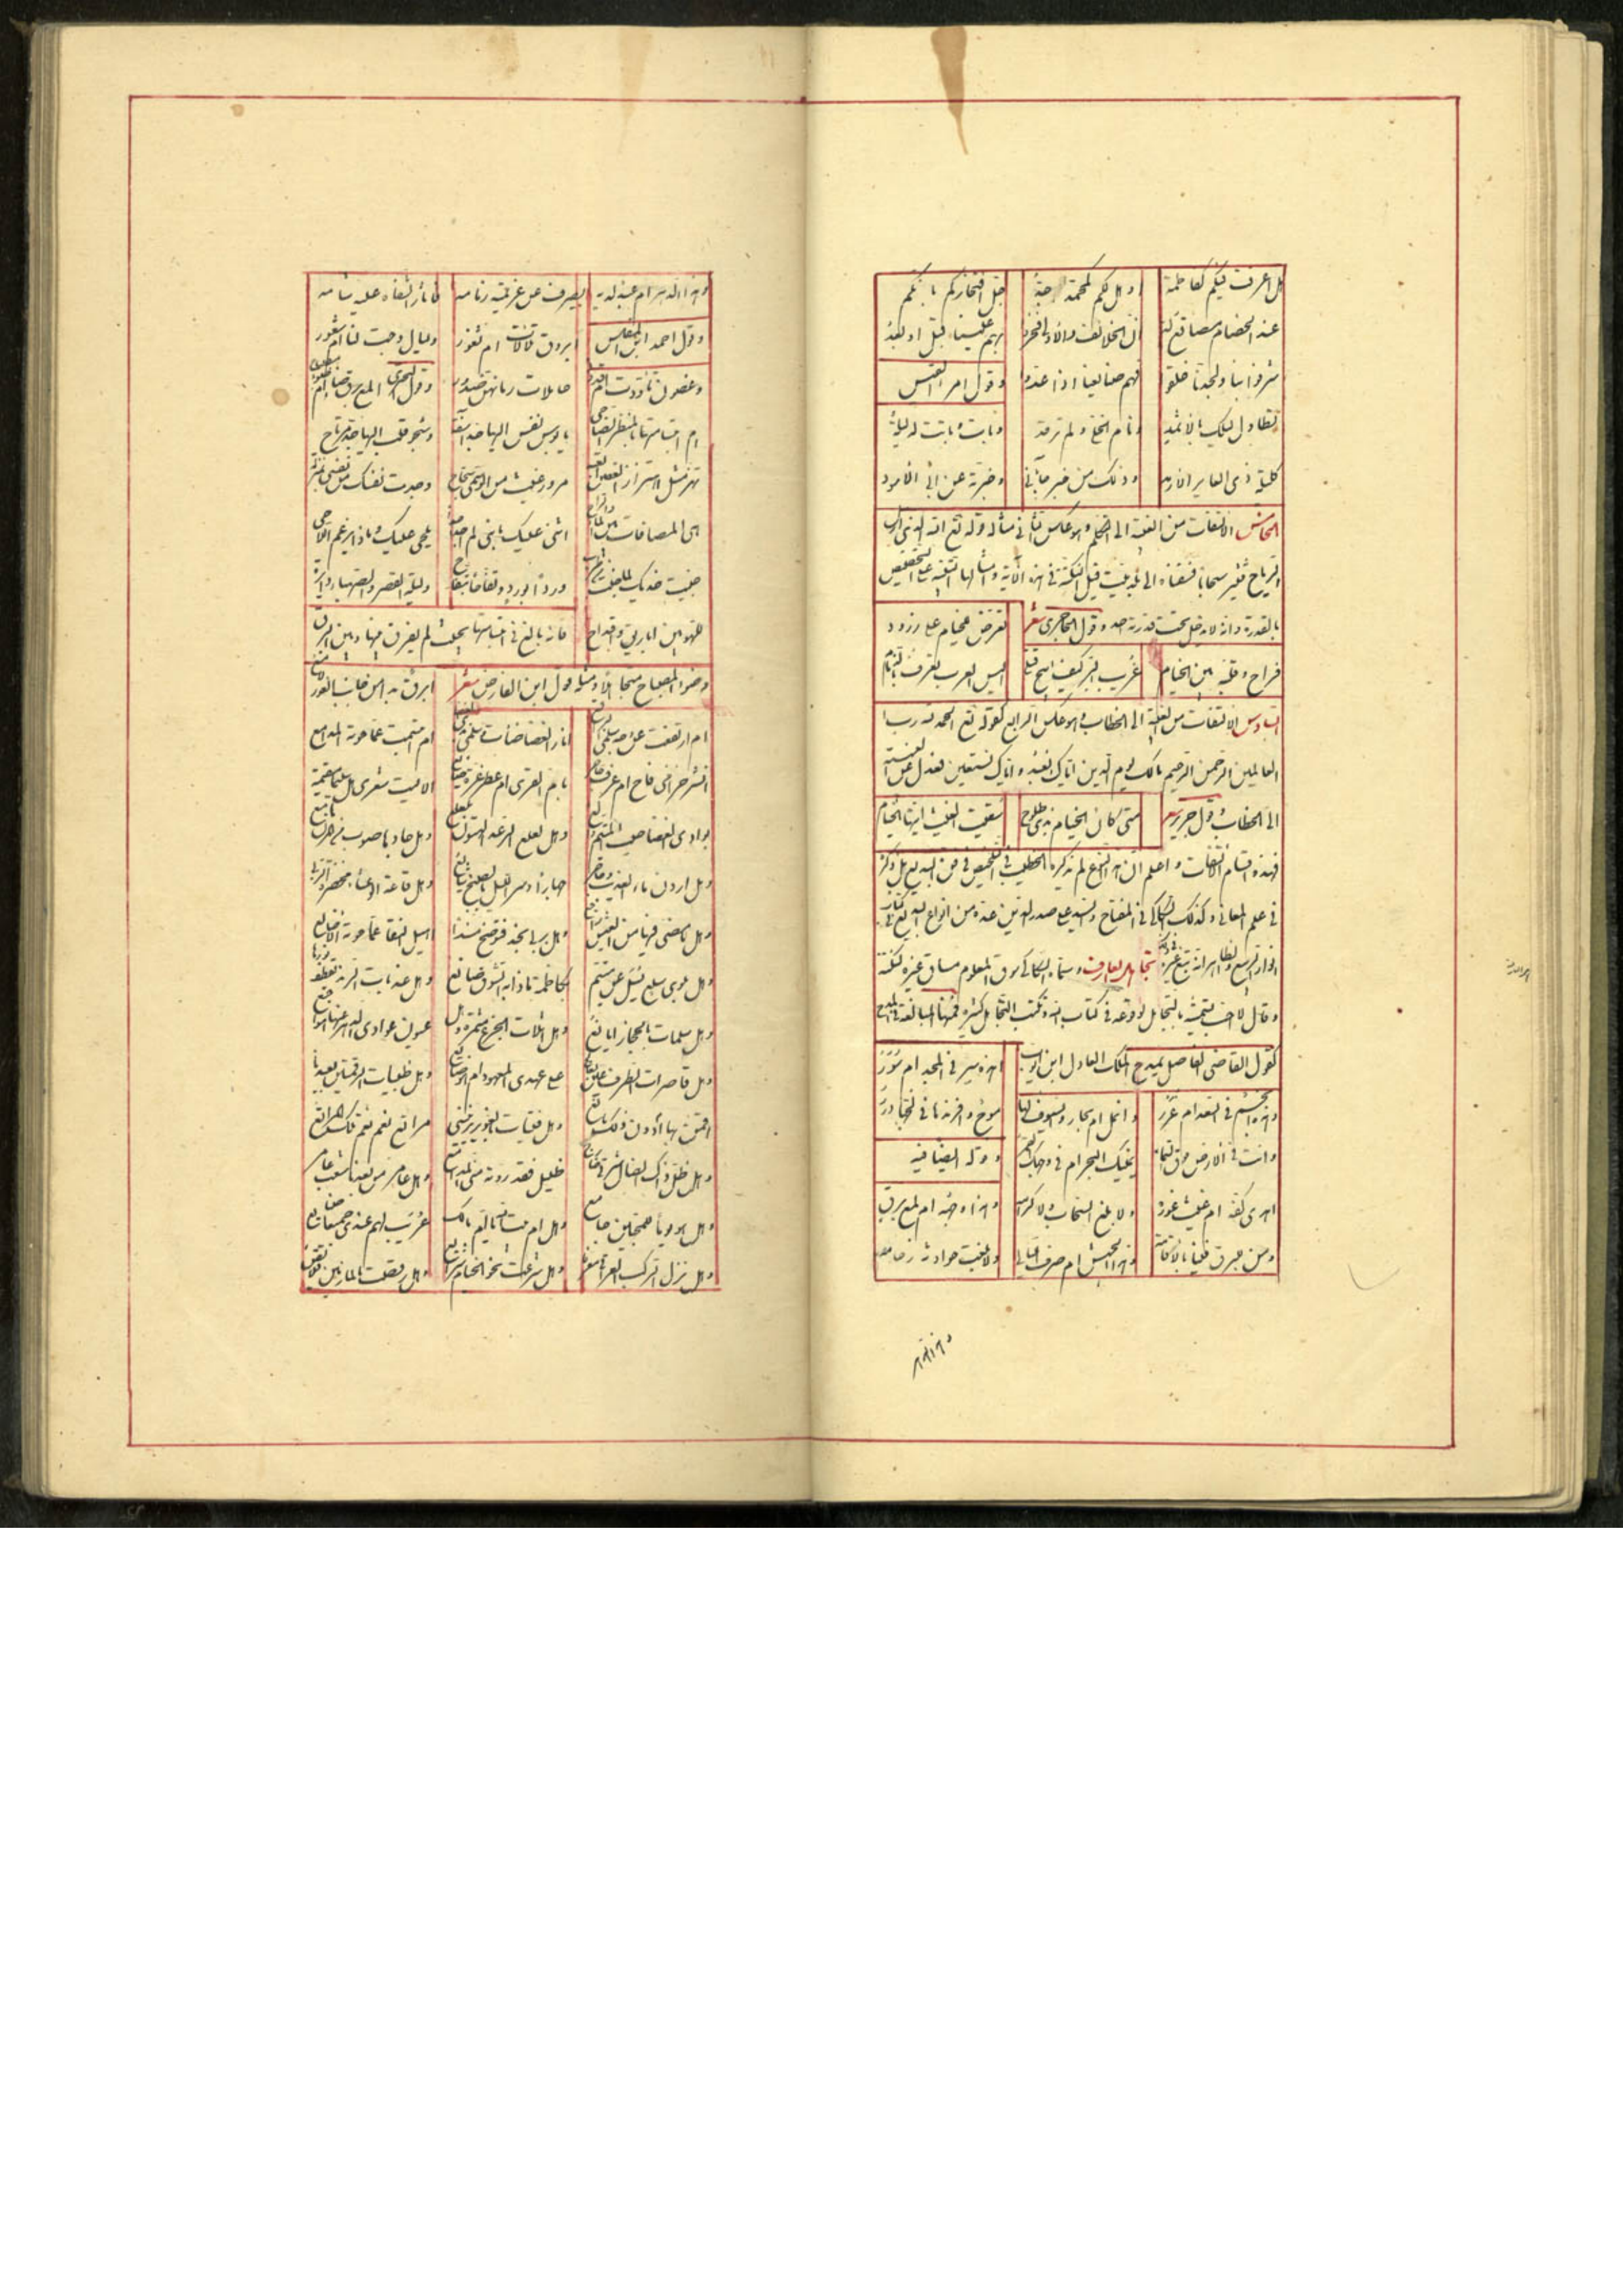 هل عرفت فيكم كفاطمة او هل لكم كمحمد جد جل افتخاركم بانكم
عند الخصام مصاقع لد ان الخلائف والاولى فخروا بهم علينا قبل او بعد
شرفوا بنا ولجدنا خلقوا فهم صنايعنا اذا عدوا وقول امرء القيس
تطاول ليلك بالاثمد ونام الخلى ولم ترقد وبات وباتت له ليلة
كليلة ذى العاير الارمد وذلك من خبر جائنى وخبرته عن ابى الاسود
الخامس الالتفات من الغيبة الى التكلم وهو عكس الثانى مثاله قوله تع الله الذى ارسل
الرياح فتثير سحابا فسقناه الى بلد ميت قيل النكتة فى هذه الآية وامثالها التنبيه على التخصيص
بالقدرة وانه لا يدخل تحت قدرة احد وقول الحاجرى شعر تعرض فخيام على زرود
فراح وقلبه بين الخيام غريب كيف اليس العرب تعرف بالذمام
السادس الالتفات من الغيبة الى الخطاب وهو عكس الرابع كقوله تع الحمد لله رب
العالمين الرحمن الرحيم مالك يوم الدين اياك نعبد واياك نستعين فعدل عن الغيبة
الى الخطاب وقول جرير متى كان الخيام بذى طلوح سقيت الغيث ايتها الخيام
فهذه اقسام التفات واعلم ان هذا النوع لم يذكره الخطيب فى التلخيص فى فن البديع بل ذكره
فى علم المعانى وكذلك السكاكى فى المفتاح والسيد على صدر الدين عده من انواع البديع فى كتاب
انوار الربيع والظاهر انه تبع غيره تجاهل العارف وسماه السكاكى سوق المعلوم مساق غيره لنكتة
وقال لا احب تسميته بالتجاهل لوقوعه فى كتاب الله ونكت التجاهل كثيرة فمنها المبالغة فى المدح
كقول القاضى الفاضل يمدح الملك العادل ابن ايوب اهذه سير فى المجد ام سور
وهذه انجم فى السعد ام غرر وانمل ام بحار والسيوف لها موج وافرندها فى لجها درر
وانت فى الارض ام فوق السماء يمينك البحر ام فى وجهك القمر وله ايضا فيه
اهذى كفه ام غيث غوث ولا بلغ السحاب ولا كرامه وهذا وجهه ام لمع برق
ومن للبرق فينا بالاقامة وهذا الجيش ام صرف الليالى ولا سبقت حوادثه زحامه
وهذا الدهر ام عبد لديه يصرف عن عزيمته زمامه
وقول احمد ابروق تلالات ام ثغور وليال دجت لنا ام شعور
وغصون تاودت ام قدود حاملات رمانهن صدور وقول البحترى المع برق
ام ابتسامتها بالمنظر الضاحى يا بوس نفس اليها وشجو قلب اليها جد مرتاح
تهتز مثل اهتزاز الغصن
ورد الورود وتفاحا بتفاح
فانه بالغ فى ابتسامها بحيث لم يفرق بينها وبين البرق
وضوء المصباح ومثله قول ابن الفارض شعر ابرق بدا من جانب الغور لامع
ام ارتفعت عن وجه سلمى البراقع انار الغضا ضاءت وسلمى بذى الغضا ام ابتسمت عما حوته المدامع
انشر خزامى فاح ام عرف حاجر بام القرى ام عطر عزة ضائع الا ليت شعرى هل سليمى مقيمة
بوادى الحمى حيث المتيم والع وهل لعلع الرعد الهتون بلعلع وهل جادها صوب من المزن هامع
وهل اردن ماء العذيب وحاجر جهارا وسر الليل بالصبح شايع وهل قاعة الوعساء مخضرة الربا
وهل ما مضى فيها من العيش راجع وهل بربى نجد فتوضح مسند اهيل النقا عما حوته الاضالع
وهل بلوى سلع يسل عن متيم بكاظمة ماذا به الشوق صانع وهل عذبات الرند يقطف نورها
وهل سلمات بالحجاز ايانع وهل اثلات الجزع مثمرة وهل عيون عوادى الدهر عنها هواجع
وهل قاصرات الطرف عين بعالج على عهدى المعهود ام هو ضائع وهل ظبيات الرقمتين بعيدنا
اقمن بها ام دون ذلك مانع وهل فتيات بالغوير يريننى مرابع نعم نعم تلك المرابع
وهل ظل ذاك الضال شرقى ضارج ظليل فقد روته منى المدامع وهل عامر من بعدنا شعب عامر
وهل هو يوما للمحبين جامع وهل ام بيت الله يا ام مالك عريب لهم عندى جميعا صنائع
وهل نزل الركب العراقى معرفا وهل شرعت نحو الخيام شرائع وهل رقصت بالمازمين قلائص